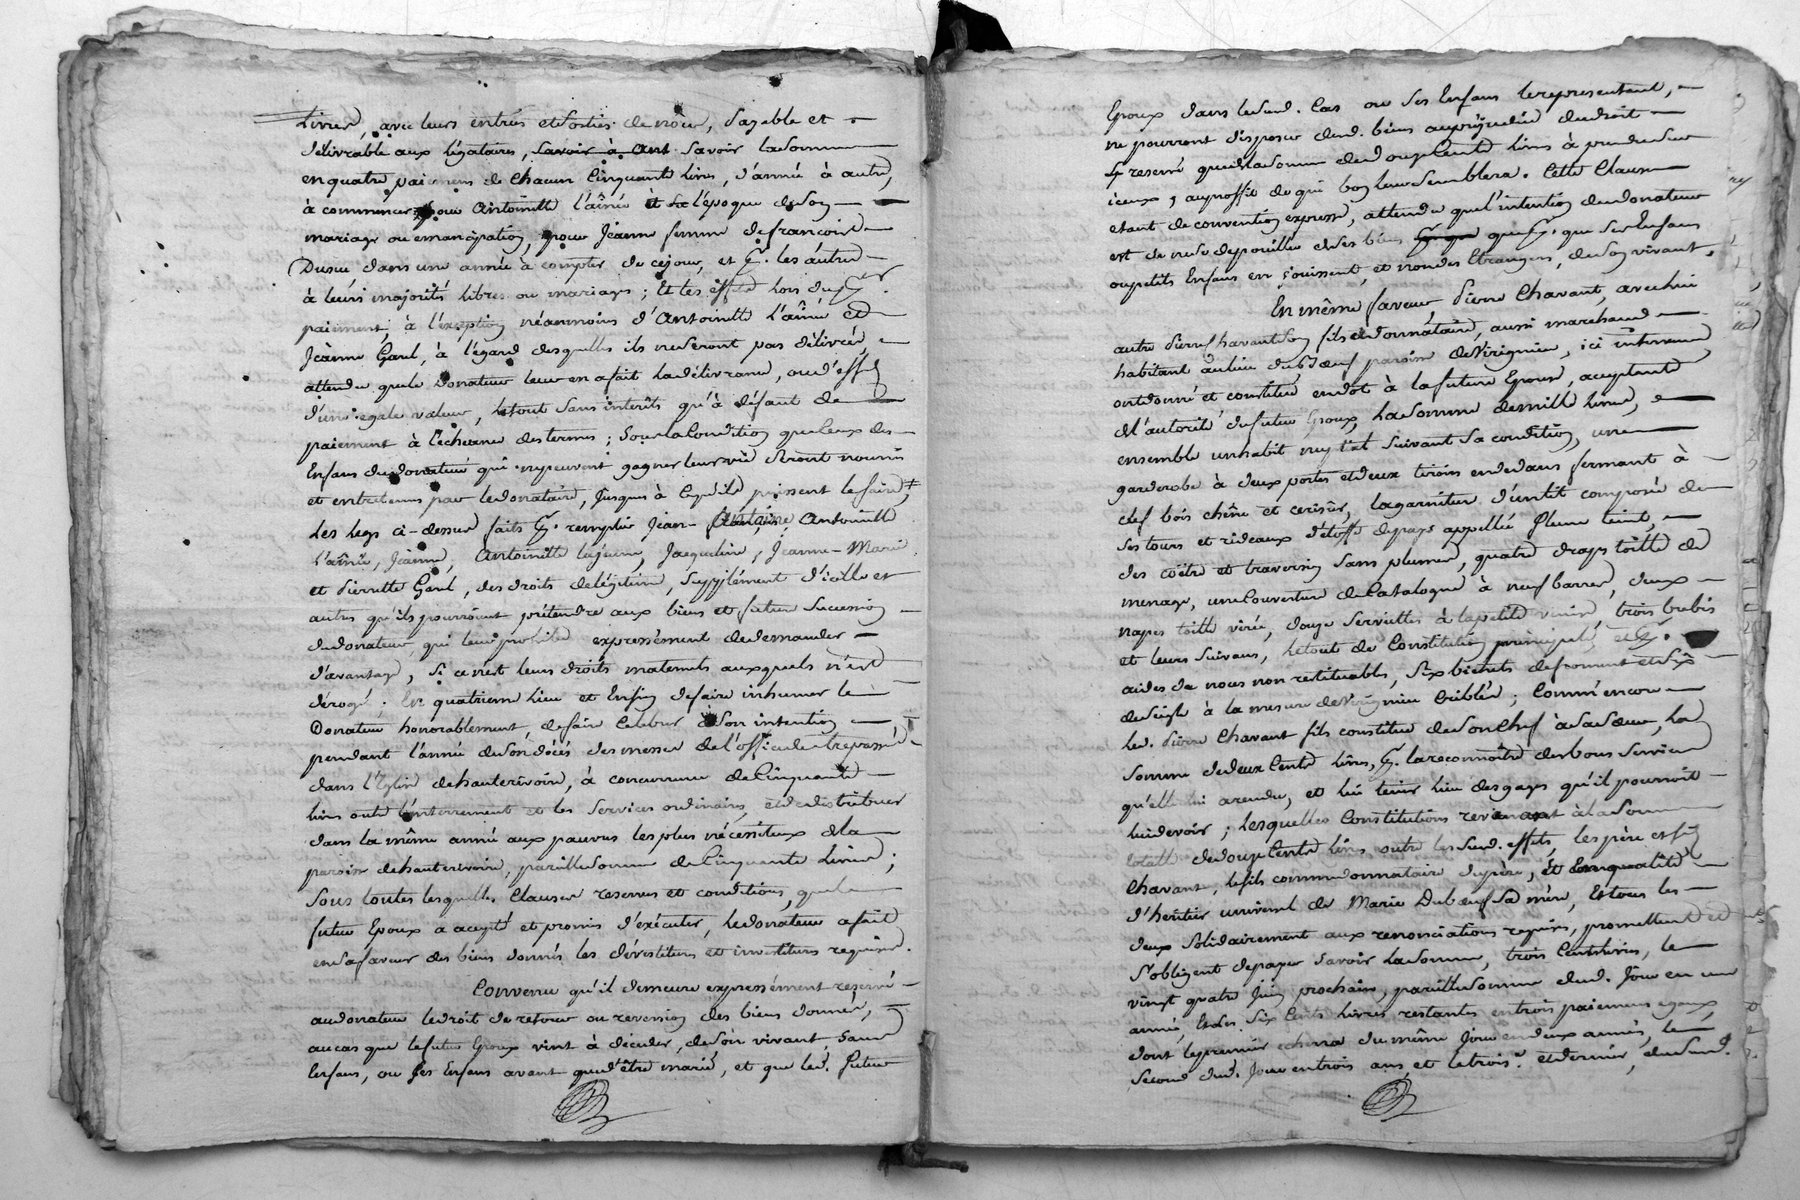 Livres, avec leurs entrées et sorties de noix, payable et
délivrable aux légataires, savoir à Ant savoir la somme
en quatre paiemens de chacun Cinquante Livres, d'année à autre,
à commencer pour Antoinette l'aînée et à l'époque de son
mariage ou emancipation, pour Jeanne femme de francois
dans une année à compter de ce jour, et pr. les autres
à leurs majorités libres ou mariages; Et les effets lors du per.
paiement, à l'exception néanmoins d'Antoinette l'aînée et
Jeanne Garel, à l'égard desquelles ils ne seront pas délivrés,
attendu que le Donateur leur en a fait la délivrance, ou d'effets
d'une egale valeur, le tout sans interêts qu'à défaut de
paiement à l'échéance des termes; Sous la Condition que Ceux des
Enfans du donateur qui ne peuvent gagner leur vie seront nourris
et entretenus par le donataire, jusques à Ce qu'ils puissent le faire,
Les Legs ci-dessus faits pr. remplir Jean-Antoine Antoinette
L'aînée, Jeanne, Antoinette la jeune, Jacqueline, Jeanne-Marie
et Pierrette Garel, des droits de légitime, supplément d'icelle et
autres qu'ils pourroient prétendre aux biens et future succession
du donateur, qui leur prohibe expressément de demander
d'avantage, si ce n'est leurs droits maternels auxquels n'est
dérogé; En quatrieme lieu et Enfin de faire inhumer le
Donateur honorablement, de faire Celebrer à son intention
pendant l'année de son décès des messes de l'office des trepassés
dans l'Eglise de hauterivoire, à concurrence de Cinquante
livres outre l'enterrement et les services ordinaires, et de distribuer
dans la même année aux pauvres les plus nécessiteux de la
paroisse de hauterivoire, pareille somme de Cinquante Livres;
Sous toutes lesquelles Clauses reserves et conditions, que le
futur Epoux a accepté et promis d'exécuter, le donateur a fait
en sa faveur des biens donnés les dévestitures et investitures requises.
Convenu qu'il demeure expressément reservé
au donateur le droit de retour ou reversion des biens donnés,
au cas que le futur Epoux vint à déceder, de son vivant, sans
Enfans, ou ses Enfans avant que d'être mariés, et que led. futur
Epoux dans led. Cas ou ses Enfans le representant,
ne pourront disposer desd. biens au préjudice du droit
reservé que de la somme de douze Cents livres à prendre sur
iceux, au proffit de qui bon leur semblera. Cette Clause
etant de convention expresse, attendu que l'intention du donateur
est de ne se depouiller de ses biens que pr. que ses Enfans
ou petits Enfans en jouissent, et non des Etrangers, de son vivant.
En même faveur, Pierre Chavant, avec lui
autre Pierre Chavant son fils et donnataire, aussi marchand
habitant au lieu du Boeuf paroisse de Virignieu, ici intervenus
ont donné et constitué en dot à la future Epouse, acceptante
de l'autorité du futur Epoux, La somme de mille livres,
ensemble un habit nuptial suivant sa condition, une
garderobe à deux portes et deux tiroirs en dedans fermant à
clef bois chêne et cerisier, la garniture d'un lit composée de
ses tours et rideaux d'étoffe de pays appellée Plume teint,
des coëtre et traversin sans plumes, quatre draps toille de
menage, une Couverture de Catalogne à neuf barres, deux
napes toille virée, douze serviettes à la petite venise, trois brebis
et leurs suivans, le tout de Constitution principale, et pr.
aides de noces non restituables, six bichets de froment et six
de seigle à la mesure de Virignieu Criblée; Comm'encore
led. Pierre Chavant fils constitue de son Chef à sa soeur, la
somme de deux Cents livres, pr. la reconnoître des bons services
qu'elle lui a rendu, et lui tenir lieu des gages qu'il pourroit
lui devoir; Lesquelles Constitutions revenant à la somme
totalle de douze Cents livres outre les susd. effets, les père et fils
Chavant, le fils comme donnataire du père, et en qualité
d'héritier universel de Marie Duboeuf sa mère, Et tous les
deux solidairement aux renonciations requises, promettent et
s'obligent de payer savoir La somme, trois Cents livres, le
vingt quatre juin prochain, pareille somme dud. jour en une
année, Et les six Cents livres restantes en trois paiemens egaux,
dont le premier echerra du même jour en deux années, le
second dud. jour en trois ans, et le trois.e et dernier, du susd.